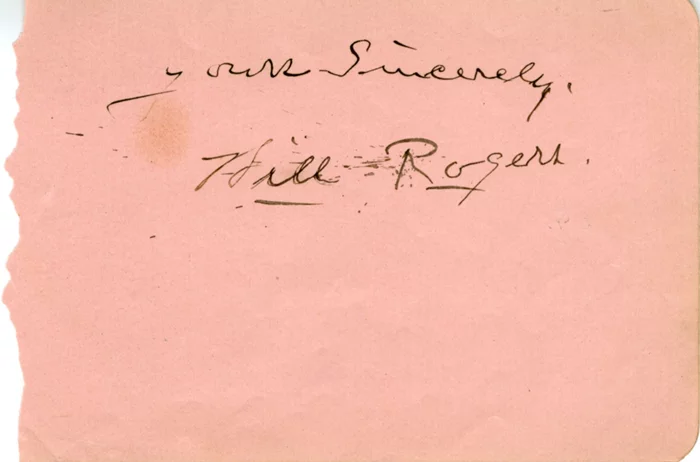 Yours Sincerely.
Will Rogers.